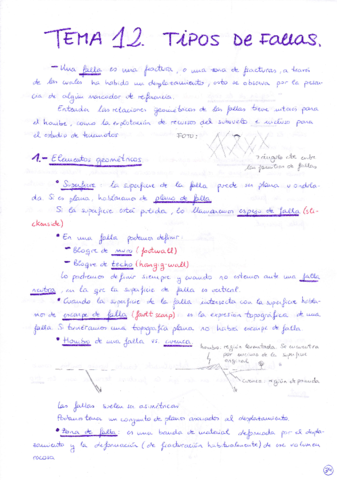 TEMA 12. TIPOS DE FALLAS.
- Una falla es una fractura, o una zona de fracturas, a través
de las cuales ha habido un desplazamiento, esto se observa por la presen
cia de algún marcador de referencia.
Entender las relaciones geométricas de las fallas tiene interés para
el hombre, como la explotación de recursos del subsuelo e incluso para
el estudio de terremotos
FOTO:
ángulo cte entre
los familias de fallas
1.- Elementos geométricos.
• Superficie: la superficie de la falla puede ser plana u ondula-
da. Si es plana, hablaremos de plano de falla
Si la superficie está pulida, lo llamaremos espejo de falla (sli-
ckenside)
• En una falla podemos definir:
- Bloque de muro (footwall)
- Bloque de techo (hanging-wall)
Lo podremos definir siempre y cuando no estemos ante una falla
neutra, en la que la superficie de falla es vertical.
• Cuando la superficie de falla intersecta con la superficie habla-
mos de escarpe de falla (fault scarp): es la expresión topográfica de una
falla. Si tuviéramos una topografía plana no habría escarpe de falla.
• Hombro de una falla vs cuenca:
hombro: región levantada. Se encuentra
por encima de la superficie
original
cuenca: región deprimida
Las fallas suelen ser asimétricas
Podemos tener un conjunto de planos asociados al desplazamiento.
• Zona de falla: es una banda de material deformada por el despla-
zamiento y la deformación (de fracturación habitualmente) de ese volumen
rocoso